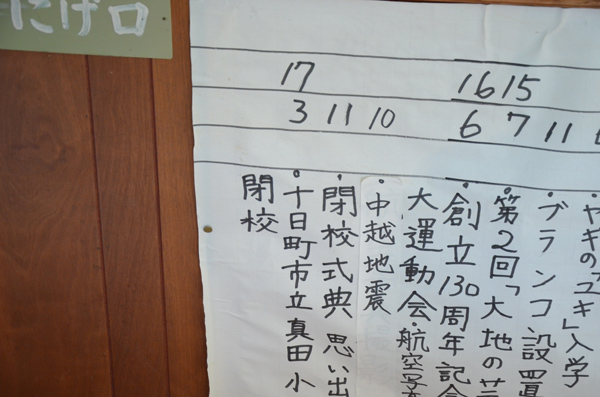 にげ口
17
16 15
3 11 10 6 7 11
・ヤギの「ユキ」入学
・ブランコ設置
・第2回「大地の芸
・創立130周年記念
大運動会・航空写
・中越地震
・閉校式典 思い出
・十日町市立真田小
閉校